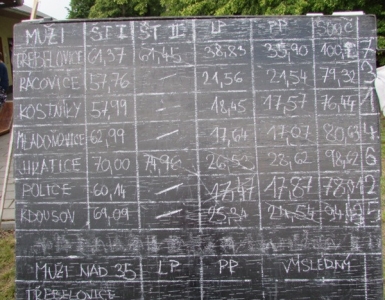 MUŽI ŠT I ŠT II LP PP SOUČ
TŘEBELOVICE 61,37 61,45 38,83 35,90 7
RÁČOVICE 57,76 — 21,56 21,54 79,32 3
KOSTNÍKY 57,99 — 18,45 17,57 76,44 1
MLADOŇOVICE 62,99 — 17,64 17,07 80,63 4
70,00 74,96 28,62 98,62 6
POLICE 60,14 — 17,47 17,87 78,01 2
KDOUSOV 69,09 — 25,34 5
MUŽI NAD 35 LP PP VÝSLEDNÝ
TŘEBELOVICE